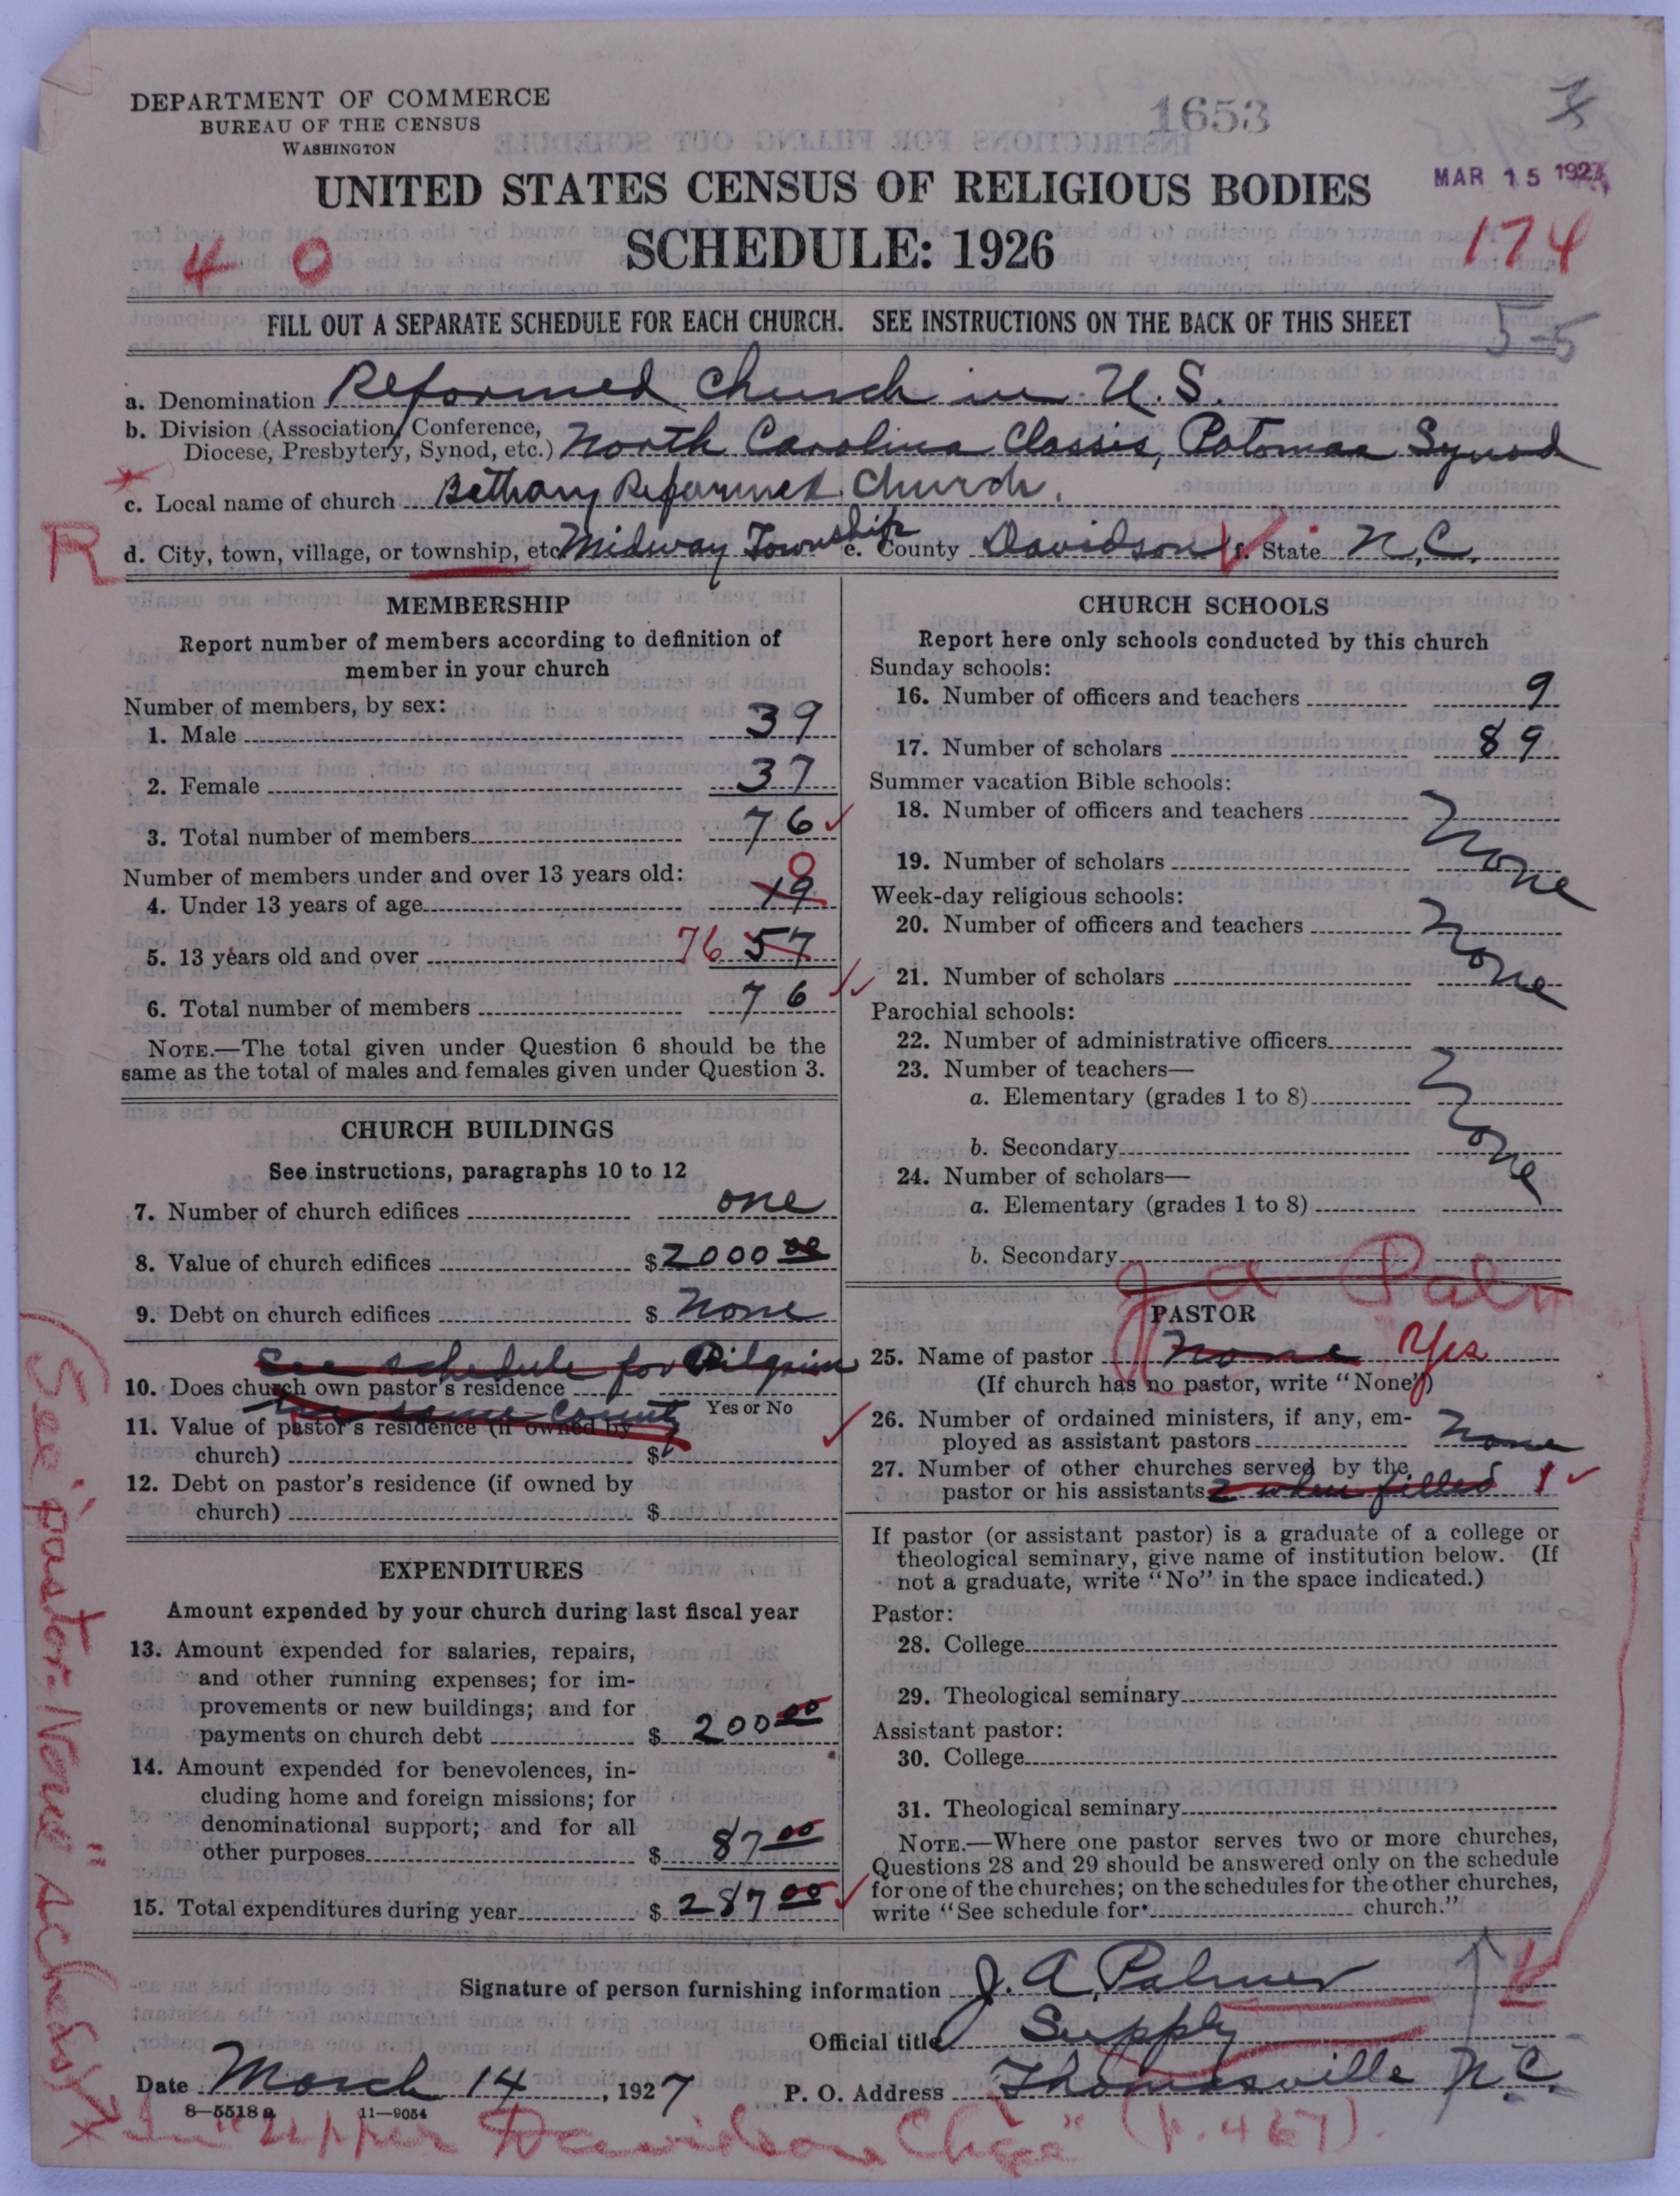 DEPARTMENT OF COMMERCE
BUREAU OF THE CENSUS
WASHINGTON
1653
MAR 15 1927
UNITED STATES CENSUS OF RELIGIOUS BODIES
SCHEDULE: 1926
4 0
174
FILL OUT A SEPARATE SCHEDULE FOR EACH CHURCH. SEE INSTRUCTIONS ON THE BACK OF THIS SHEET
55
a. Denomination Reformed Church in U.S.
b. Division (Association, Conference,
Diocese, Presbytery, Synod, etc.) North Carolina Classis, Potomac Synod
* c. Local name of church Bethany Reformed Church.
R
d. City, town, village, or township, etc. Midway Township e. County Davidson f. State N.C.
MEMBERSHIP
Report number of members according to definition of
member in your church
Number of members, by sex:
1. Male 39
2. Female 37
3. Total number of members 76
Number of members under and over 13 years old:
4. Under 13 years of age 19 0
5. 13 years old and over 76 57
6. Total number of members 76
NOTE.—The total given under Question 6 should be the
same as the total of males and females given under Question 3.
CHURCH BUILDINGS
See instructions, paragraphs 10 to 12
7. Number of church edifices one
8. Value of church edifices $2000 00
9. Debt on church edifices $ None
See schedule for Pilgrim
10. Does church own pastor's residence
Yes or No
same county
11. Value of pastor's residence (if owned by
church) $
12. Debt on pastor's residence (if owned by
church) $
EXPENDITURES
Amount expended by your church during last fiscal year
13. Amount expended for salaries, repairs,
and other running expenses; for im-
provements or new buildings; and for
payments on church debt $ 200 00
14. Amount expended for benevolences, in-
cluding home and foreign missions; for
denominational support; and for all
other purposes $ 87 00
15. Total expenditures during year $ 287 00
CHURCH SCHOOLS
Report here only schools conducted by this church
Sunday schools:
16. Number of officers and teachers 9
17. Number of scholars 89
Summer vacation Bible schools:
18. Number of officers and teachers
None
19. Number of scholars
Week-day religious schools:
20. Number of officers and teachers
None
21. Number of scholars
Parochial schools:
22. Number of administrative officers
23. Number of teachers—
a. Elementary (grades 1 to 8)
None
b. Secondary
24. Number of scholars—
a. Elementary (grades 1 to 8)
b. Secondary
J A Palm
PASTOR
25. Name of pastor None Yes
(If church has no pastor, write "None")
26. Number of ordained ministers, if any, em-
ployed as assistant pastors None
27. Number of other churches served by the
pastor or his assistants 2 when filled 1
If pastor (or assistant pastor) is a graduate of a college or
theological seminary, give name of institution below. (If
not a graduate, write "No" in the space indicated.)
Pastor:
28. College
29. Theological seminary
Assistant pastor:
30. College
31. Theological seminary
NOTE.—Where one pastor serves two or more churches,
Questions 28 and 29 should be answered only on the schedule
for one of the churches; on the schedules for the other churches,
write "See schedule for church."
Signature of person furnishing information J. A. Palmer
Official title Supply
Date March 14, 1927
P. O. Address Thomasville N.C.
8—5518 a 11—9054
* In "Upper Davidson Chge" (p. 467).
(See "pastor-None" sched.)